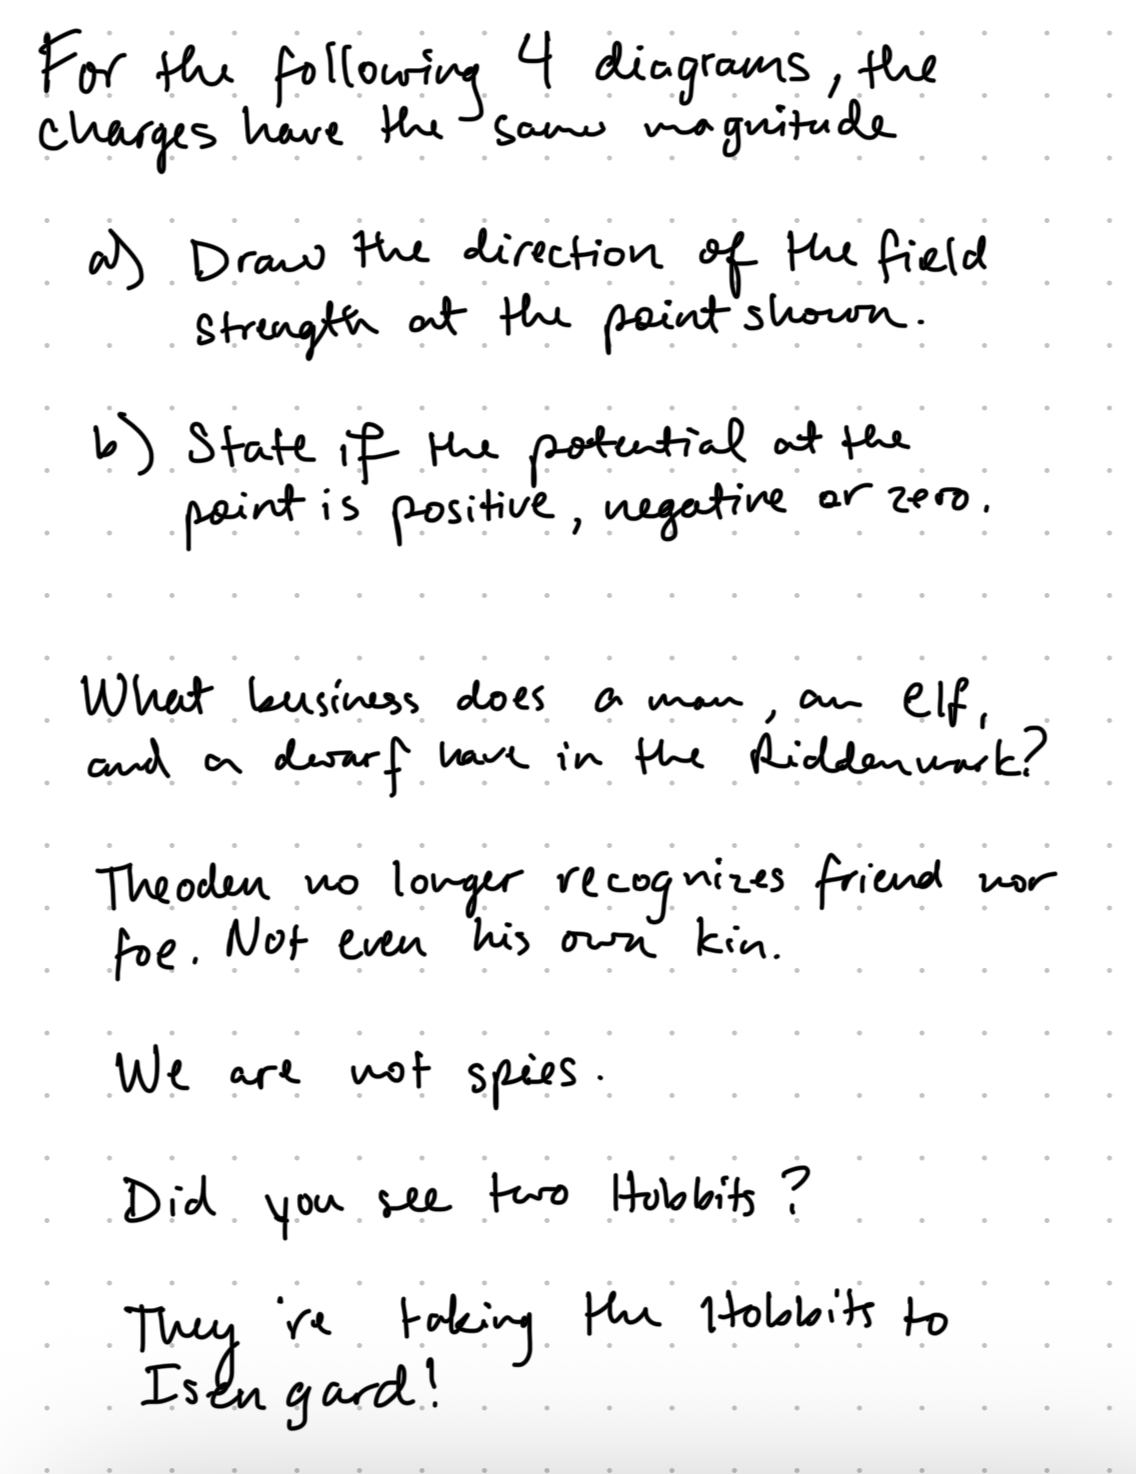 For the following 4 diagrams, the
charges have the same magnitude
a) Draw the direction of the field
strength at the point shown.
b) State if the potential at the
point is positive, negative or zero.
What business does a man, an elf,
and a dwarf have in the Riddenmark?
Theoden no longer recognizes friend nor
foe. Not even his own kin.
We are not spies.
Did you see two Hobbits?
They're taking the Hobbits to
Isengard!